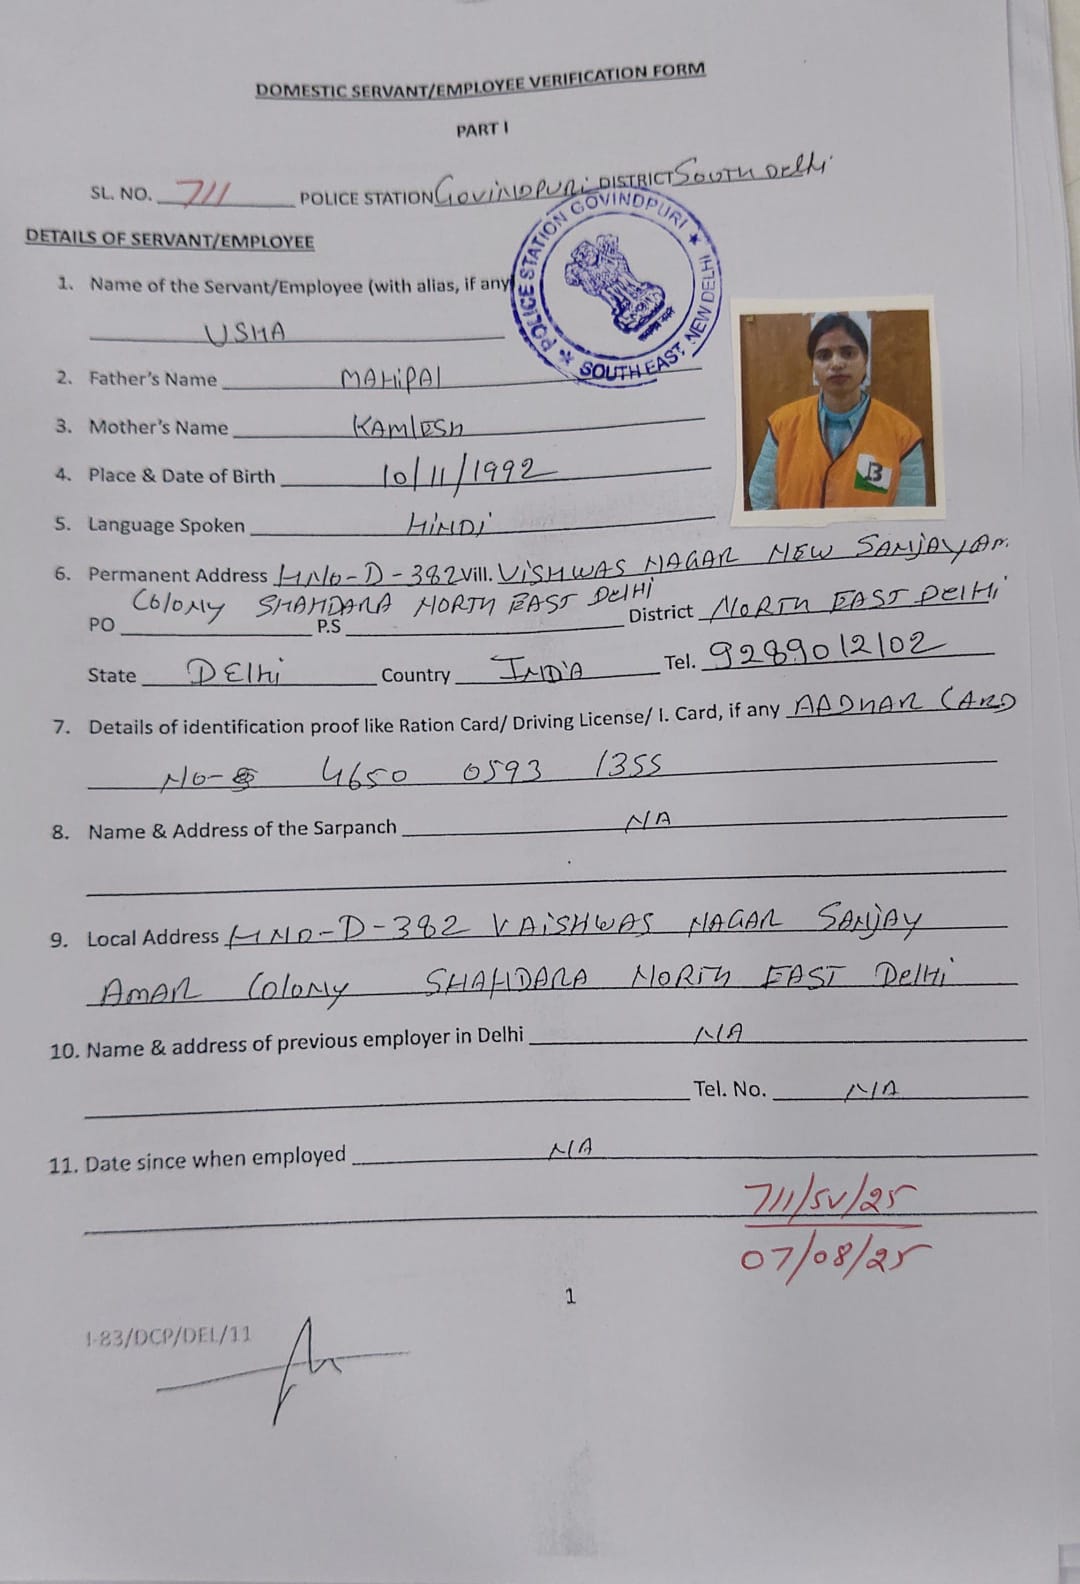 DOMESTIC SERVANT/EMPLOYEE VERIFICATION FORM
PART I
SL. NO. 711 POLICE STATION GOVINDPURI DISTRICT SOUTH DELHI
POLICE STATION GOVINDPURI ★ SOUTH EAST, NEW DELHI ★
DETAILS OF SERVANT/EMPLOYEE
1. Name of the Servant/Employee (with alias, if any
USHA
2. Father's Name MAHIPAL
3. Mother's Name KAMLESH
4. Place & Date of Birth 10/11/1992
5. Language Spoken HINDI
6. Permanent Address HNO-D-382 Vill. VISHWAS NAGAR NEW SANJAY AM.
COLONY SHAHDARA NORTH EAST DELHI
PO P.S District NORTH EAST DELHI
State DELHI Country INDIA Tel. 9289012102
7. Details of identification proof like Ration Card/ Driving License/ I. Card, if any AADHAR CARD
NO- 4650 0593 1355
8. Name & Address of the Sarpanch N/A
9. Local Address HNO-D-382 VAISHWAS NAGAR SANJAY
AMAR COLONY SHAHDARA NORTH EAST DELHI
10. Name & address of previous employer in Delhi N/A
Tel. No. N/A
11. Date since when employed N/A
711/SV/25
07/08/25
1
I-83/DCP/DEL/11